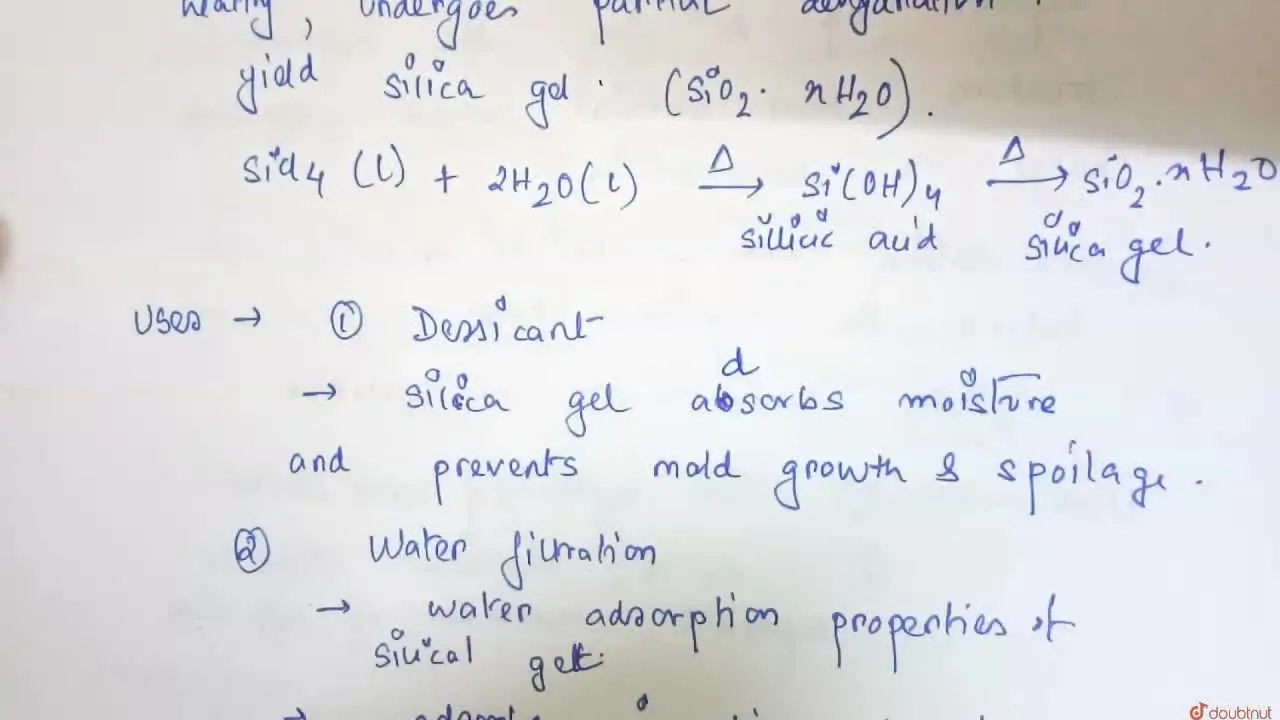 undergoes partial
yield silica gel. (SiO2. nH2O).
SiCl4 (l) + 2H2O(l) Δ→ Si(OH)4 Δ→ SiO2.nH2O
sillicic acid silica gel.
Uses → ① Dessicant
d
→ silica gel absorbs moisture
and prevents mold growth & spoilage.
② Water filtration
→ water adsorption properties of
silical gel.
doubtnut